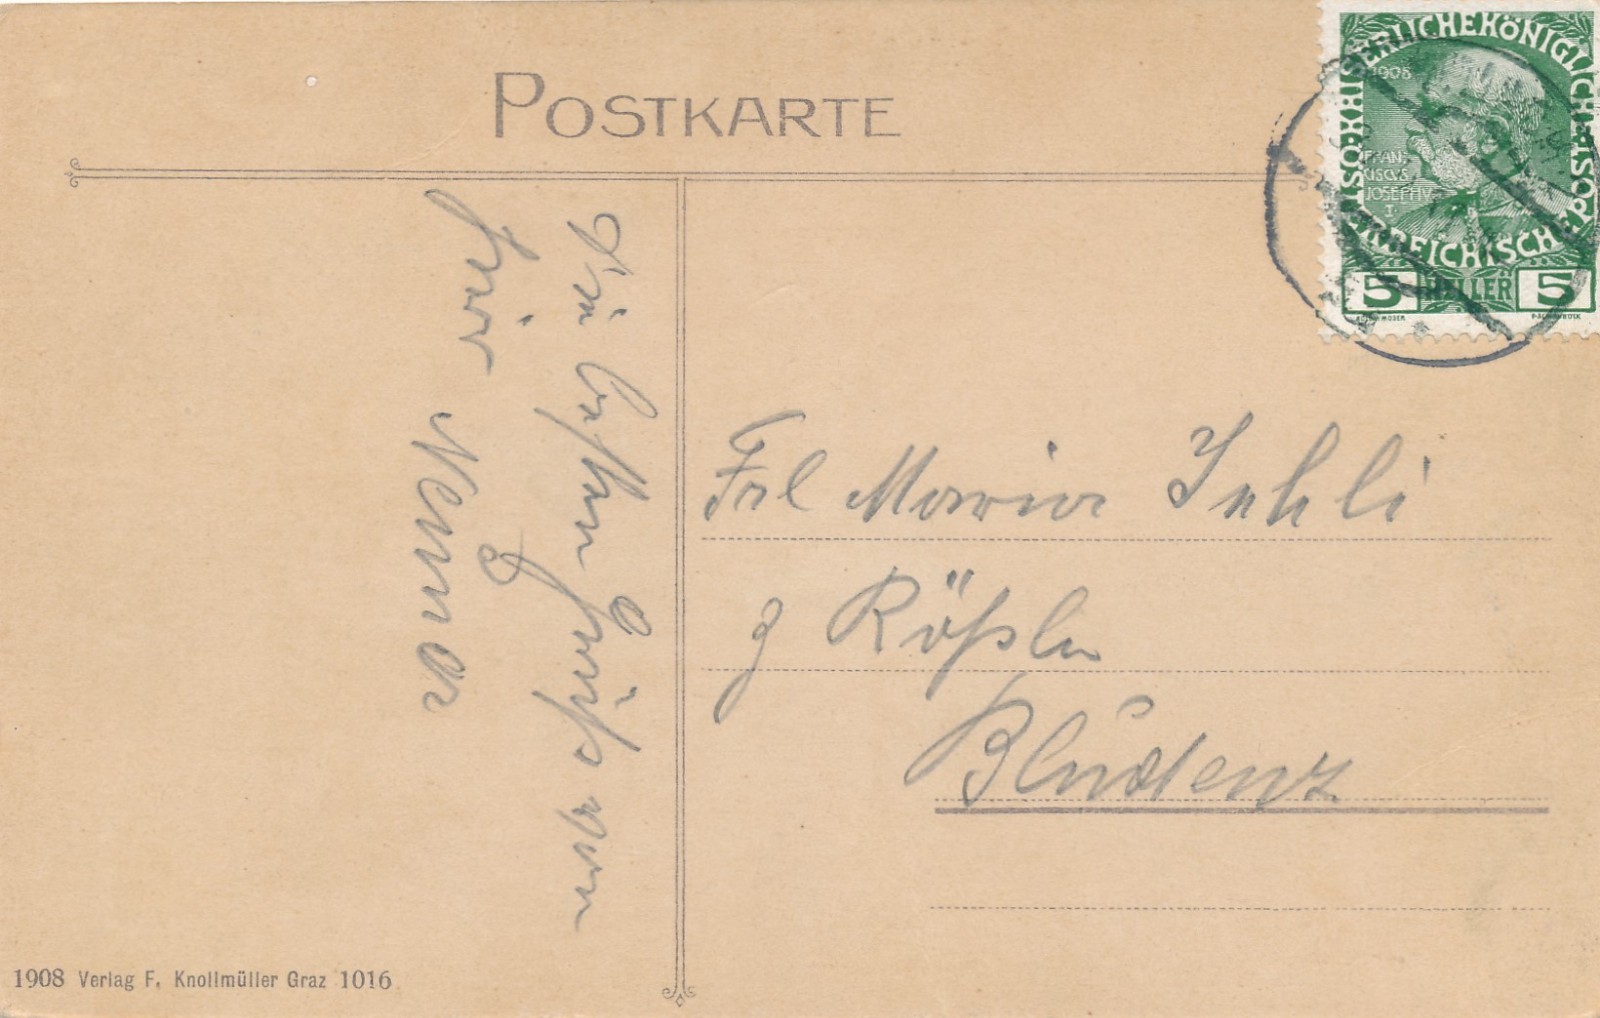 POSTKARTE
KAISERLICHE KÖNIGLICHE ÖSTERREICHISCHE POST
1908
FRAN
CISCVS
JOSEPHV
I
5 HELLER 5
Die besten Grüße von
hier
Nenna
Frl Maria Jehli
z Rößle
Bludenz
1908 Verlag F. Knollmüller Graz 1016